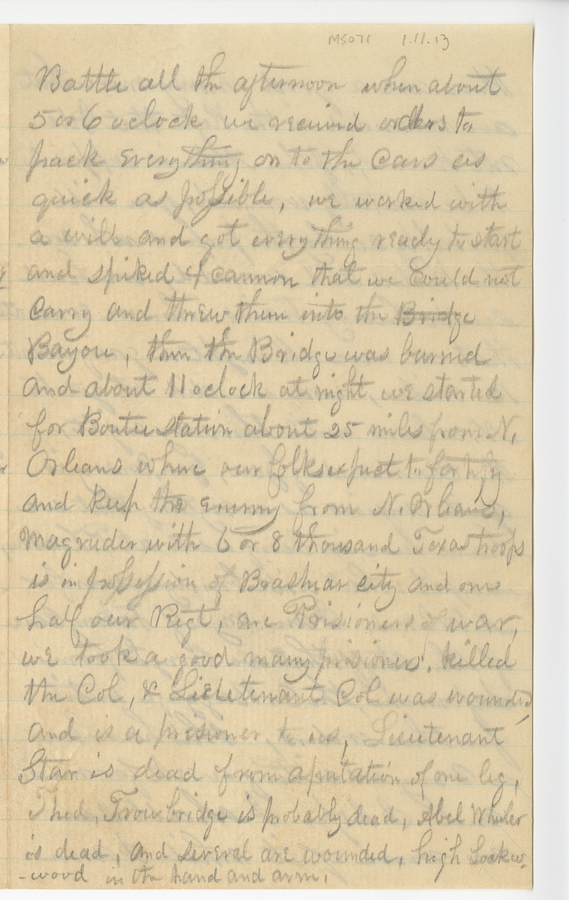 MS071 1.11.13
Battle all the afternoon when about
5 or 6 oclock we recived orders to
pack Everything on to the Cars as
quick as possible, we worked with
a will and got everything ready to start
and spiked 4 cannon that we could not
Carry and threw them into the Bridge
Bayou, then the Bridge was burned
and about 11 oclock at night we started
for Boutee Station about 25 miles from N.
Orleans where our folks expect to fortify
and keep the enemy from N. Orleans,
Magruder with 6 or 8 thousand Texas troops
is in possession of Brashear city and one
half our Regt, are Prisioners of war,
we took a good many prisioners, killed
the Col, & Lieutenant Col was wounded
and is a prisioner to us, Lieutenant
Star is dead from aputation of one leg,
Thed, Trowbridge is probably dead, Abel Wheler
is dead, and several are wounded, high Lockw-
-wood in the hand and arm,